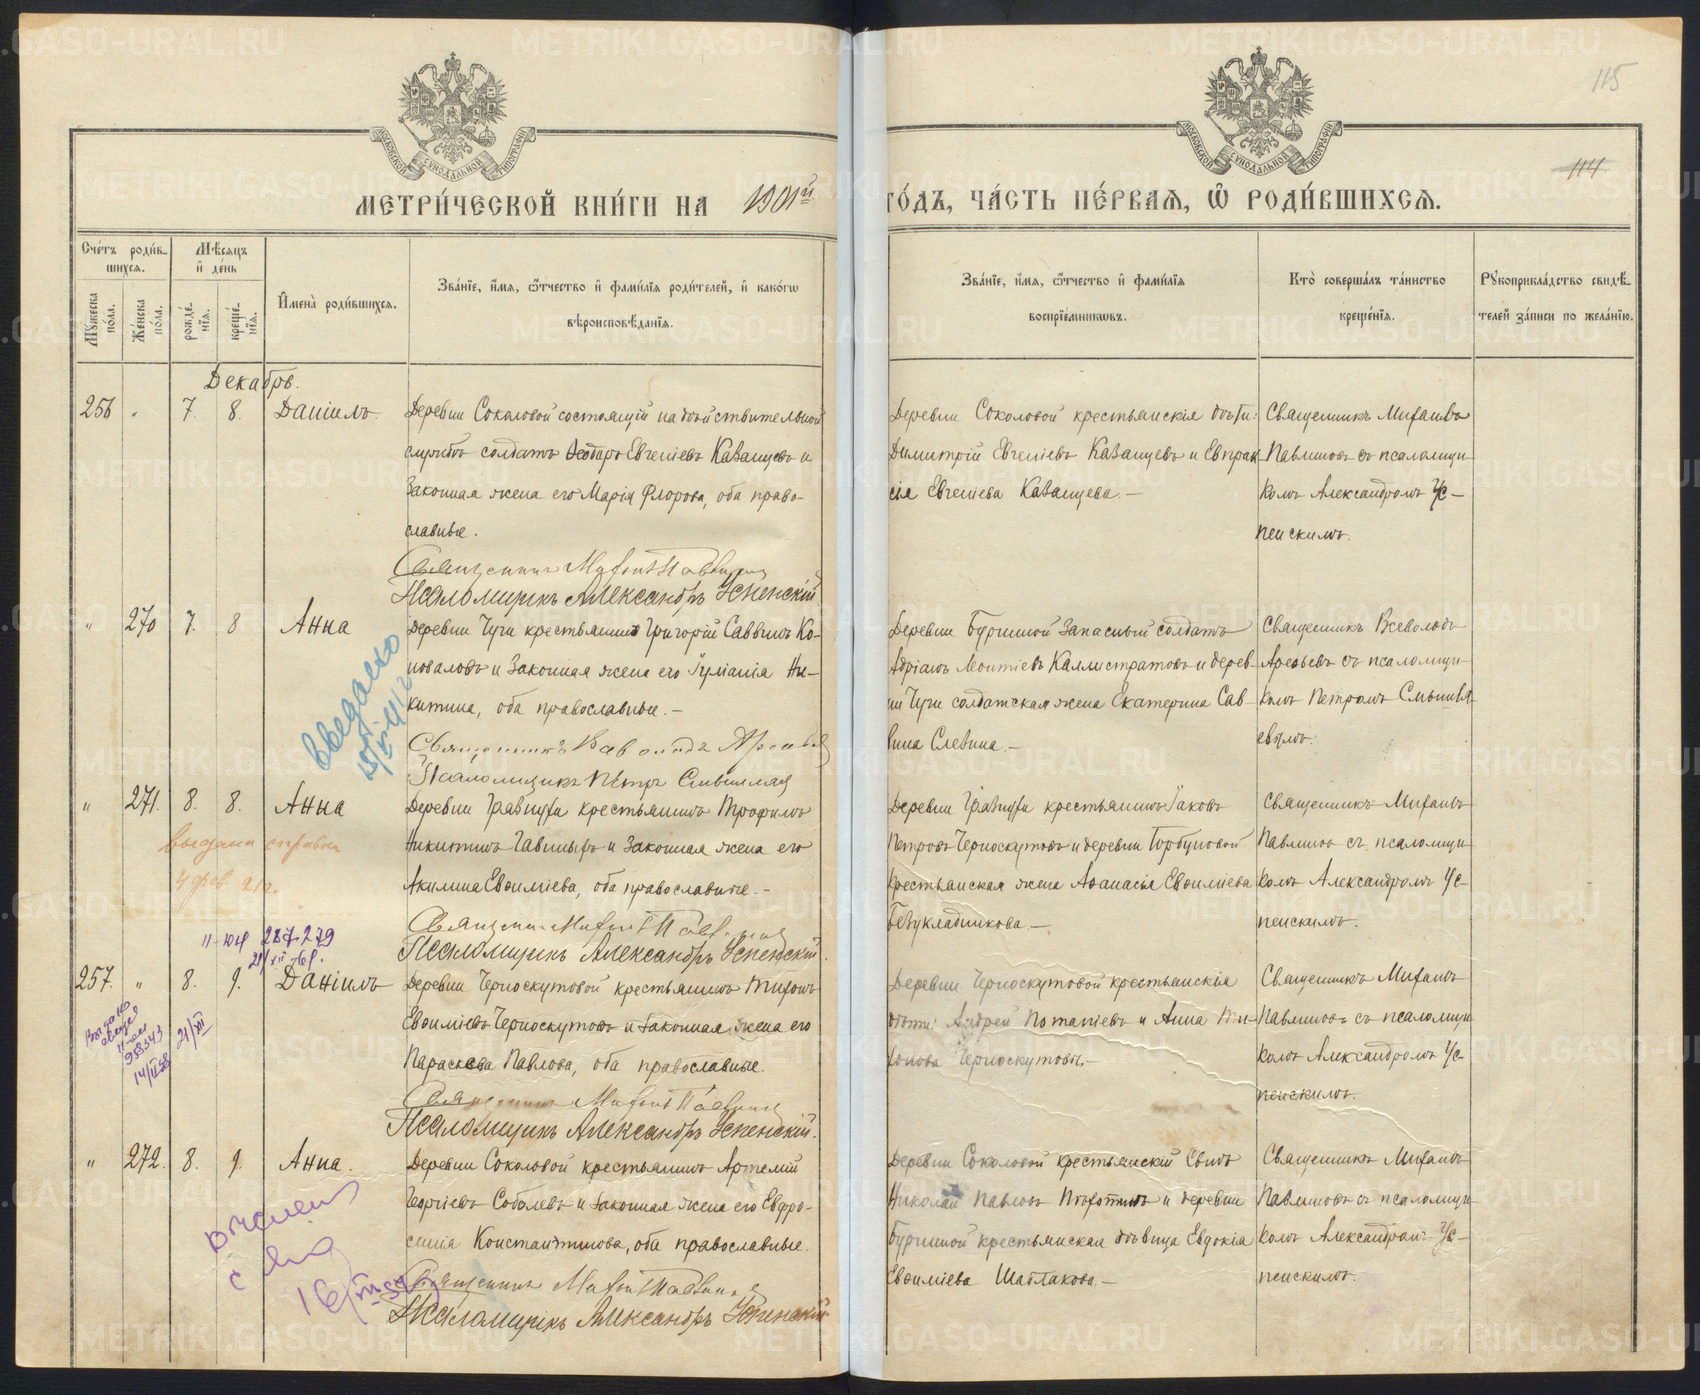 115
114
МЕТРИ́ЧЕСКОЙ КНИ́ГИ НА 1901й
ГО́ДЪ, ЧА́СТЬ ПЕ́РВАЯ, Ѿ РОДИ́ВШИХСЯ.
Сче́тъ роди́в-
шихся.
Мꙋ́жеска по́ла.
Же́нска по́ла.
Мѣ́сяцъ
и҆ де́нь
рожде́-
нїя.
креще́-
нїя.
И҆мена̀ роди́вшихся.
Зва́нїе, и҆́мя, ѻ҆́тчество и҆ фами́лїя роди́телей, и҆ како́гѡ
вѣроисповѣ́данїя.
Зва́нїе, и҆́мя, ѻ҆́тчество и҆ фами́лїя
воспрїе́мникѡвъ.
Кто̀ соверша́лъ та́инство
креще́нїя.
Рꙋкоприкла́дство свидѣ́-
телей за́писи по жела́нїю.
Декабрь.
256 " 7. 8. Даніилъ.
Деревни Соколовой состоящій на дѣйствительной
службѣ солдатъ Ѳеодоръ Евгеніевъ Казанцевъ и
законная жена его Марія Флорова, оба право-
славные.
Священникъ Михаилъ Павлиновъ
Псаломщикъ Александръ Успенскій.
Деревни Соколовой крестьянскія дѣти:
Димитрій Евгеніевъ Казанцевъ и Евпрак
сія Евгеніева Казанцева.—
Священникъ Михаилъ
Павлиновъ съ псаломщи-
комъ Александромъ Ус-
пенскимъ.
" 270 7. 8 Анна
Деревни Чуги крестьянинъ Григорій Саввинъ Ко-
новаловъ и законная жена его Іуліанія Ни-
китина, оба православные.—
Священникъ Всеволодъ
Псаломщикъ Петръ
Деревни Буриной запасный солдатъ
Адріанъ Леонтіевъ Каллистратовъ и дерев-
ни Чуги солдатская жена Екатерина Сав-
вина Слевина.—
Священникъ Всеволодъ
съ псаломщи-
комъ Петромъ
" 271. 8. 8. Анна
выдана справка
Деревни Грязнухи крестьянинъ Трофимъ
Никитинъ и законная жена его
Акилина Евѳиміева, оба православные.—
Священникъ Михаилъ Павлиновъ
Псаломщикъ Александръ Успенскій.
Деревни Грязнухи крестьянинъ Іаковъ
Петровъ Черноскутовъ и деревни Горбуновой
крестьянская жена Аѳанасія Евѳиміева
Безукладникова.—
Священникъ Михаилъ
Павлиновъ съ псаломщи-
комъ Александромъ Ус-
пенскимъ.
257. " 8. 9. Даніилъ
Деревни Черноскутовой крестьянинъ Тихонъ
Евѳиміевъ Черноскутовъ и законная жена его
Параскева Павлова, оба православные.
Священникъ Михаилъ Павлиновъ
Псаломщикъ Александръ Успенскій.
Деревни Черноскутовой крестьянскія
дѣти: Андрей Потапіевъ и Анна Ти-
хонова Черноскутовы.—
Священникъ Михаилъ
Павлиновъ съ псаломщи-
комъ Александромъ Ус-
пенскимъ.
" 272. 8. 9. Анна.
Деревни Соколовой крестьянинъ Артемій
Георгіевъ Соболевъ и законная жена его Евфро-
синія Константинова, оба православные.
Священникъ Михаилъ Павлиновъ
Псаломщикъ Александръ Успенскій
Деревни Соколовой крестьянскій сынъ
Николай Павловъ и деревни
Буриной крестьянская дѣвица Евдокія
Евѳиміева Шаблакова.—
Священникъ Михаилъ
Павлиновъ съ псаломщи-
комъ Александромъ Ус-
пенскимъ.
METRIKI.GASO-URAL.RU